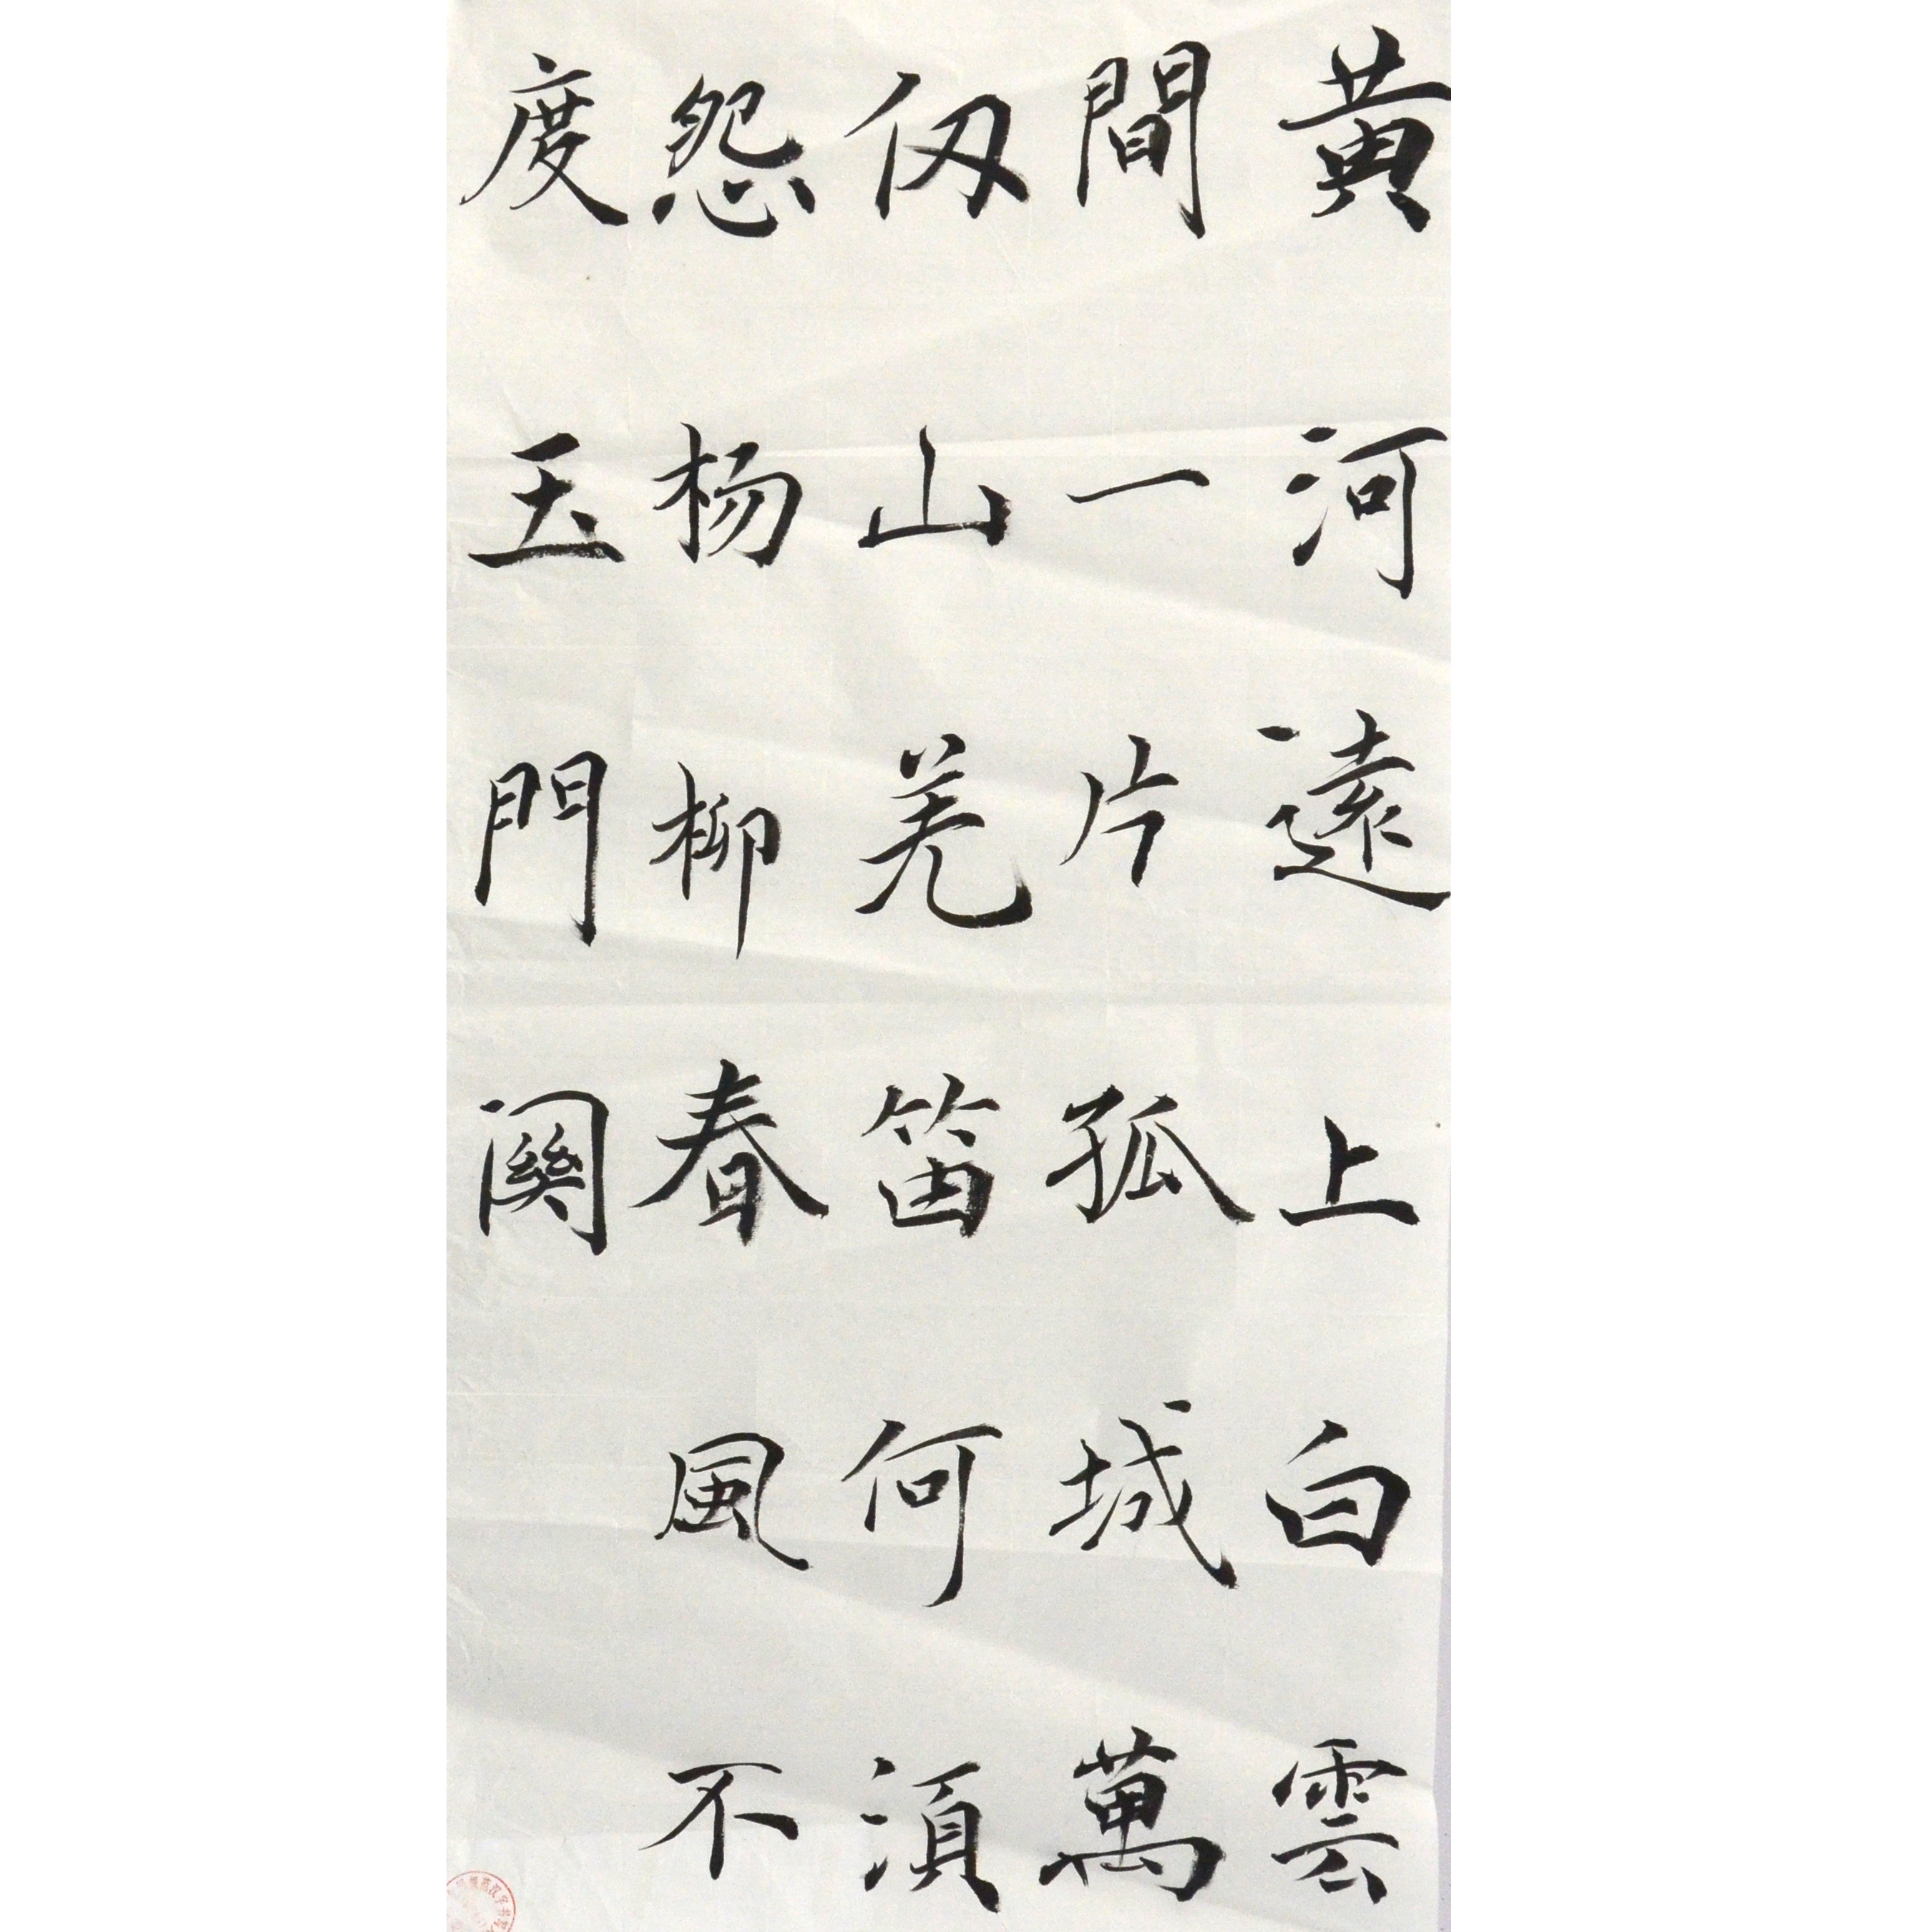 黄河遠上白雲
間一片孤城萬
仭山羌笛何湏
怨杨柳春風不
度玉門関